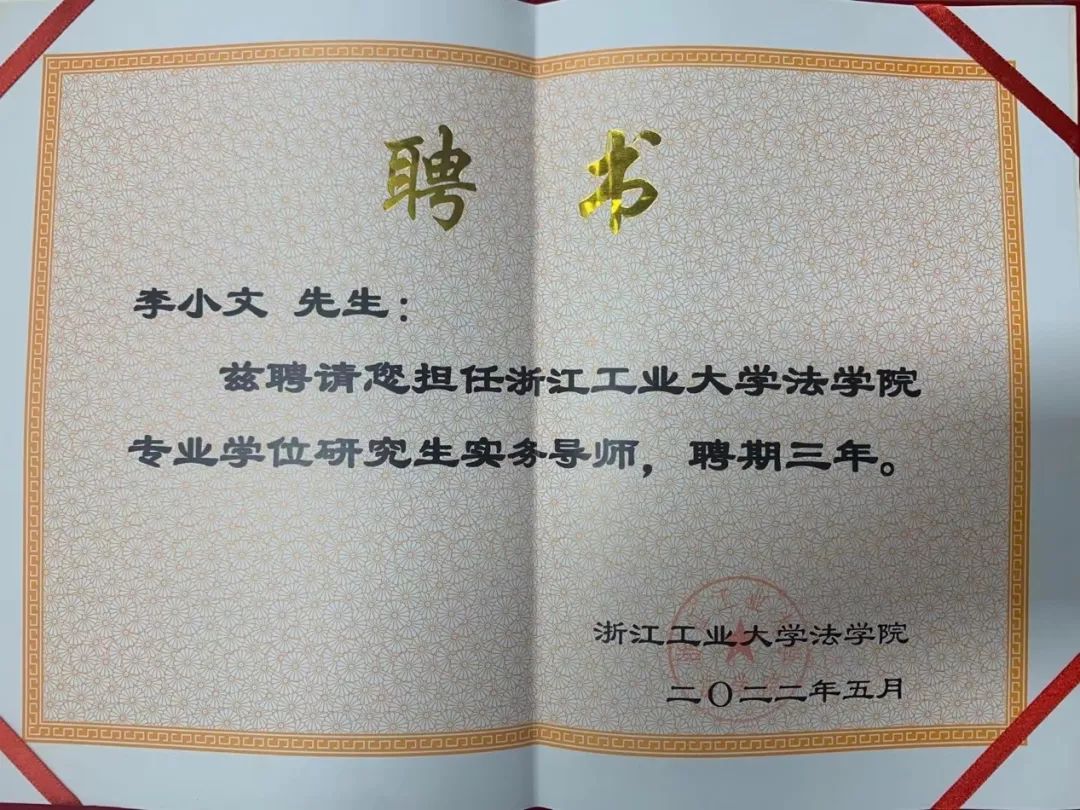 聘 书
李小文 先生：
兹聘请您担任浙江工业大学法学院
专业学位研究生实务导师，聘期三年。
浙江工业大学法学院
二〇二二年五月